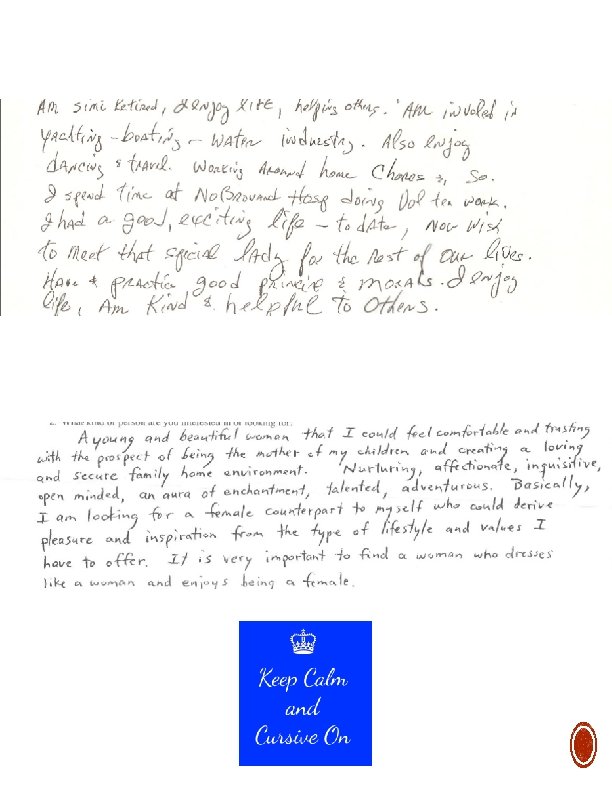 Am simi Retired, I enjoy life, helping others. Am involed in
yacalting - boating - water industry. Also enjoy
dancing & travel. Working Around home Chores &, So.
I spend Time at NoBroward Hosp doing Vol tea work.
I had a good, exciting life - to date, Now Wish
to meet that special lady for the Rest of our lives.
Have & practice good princive & morals. I enjoy
life, Am Kind & helpful to others.
2. What kind of person are you interested in or looking for:
A young and beautiful woman that I could feel comfortable and trusting
with the prospect of being the mother of my children and creating a loving
and secure family home environment. Nurturing, affectionate, inquisitive,
open minded, an aura of enchantment, talented, adventurous. Basically,
I am looking for a female counterpart to myself who could derive
pleasure and inspiration from the type of lifestyle and values I
have to offer. It is very important to find a woman who dresses
like a woman and enjoys being a female.
Keep Calm
and
Cursive On